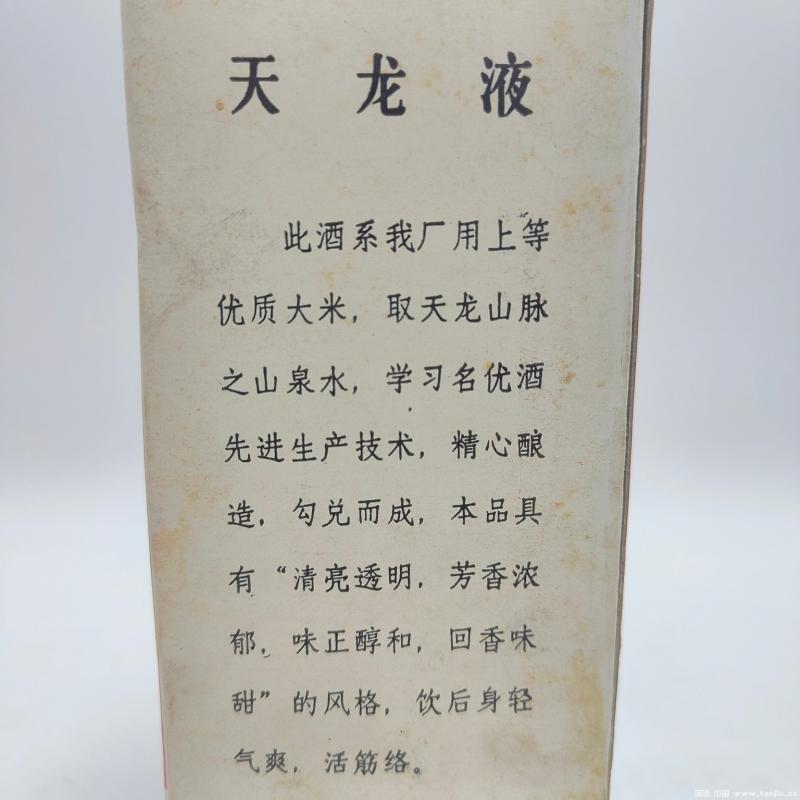 天龙液
此酒系我厂用上等
优质大米，取天龙山脉
之山泉水，学习名优酒
先进生产技术，精心酿
造，勾兑而成，本品具
有“清亮透明，芳香浓
郁，味正醇和，回香味
甜”的风格，饮后身轻
气爽，活筋络。